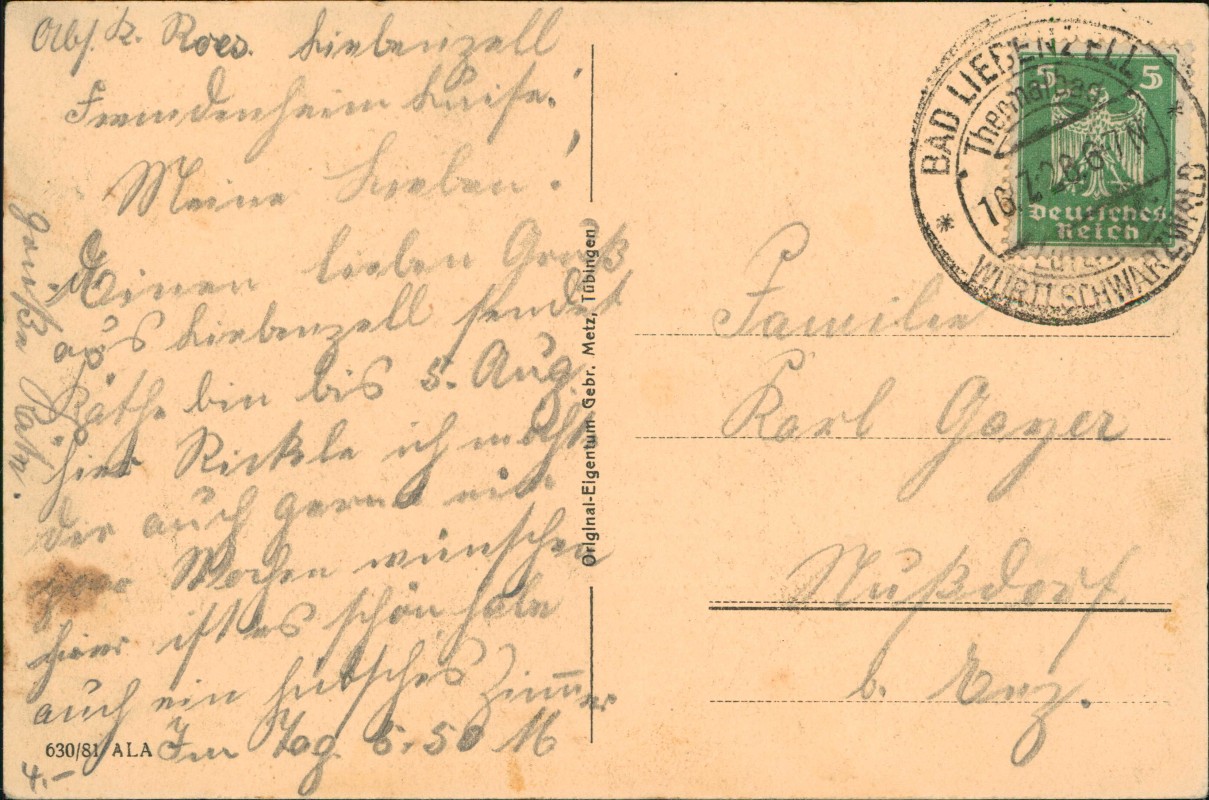 Abs. K. Roes. Liebenzell
Fremdenheim Luise.
Meine Lieben!
Einen lieben Gruß
aus Liebenzell sendet
Käthe bin bis 5. Aug.
hier Rickele ich möcht
der auch gerne ein
paar Wochen wünschen
hier ist es schön habe
auch ein hübsches Zimmer
Im Tag 5.50 M
630/81 ALA
4.-
Original-Eigentum Gebr. Metz, Tübingen
BAD LIEBENZELL
Thermalbad
16.7.28.6-7N
WÜRTT.SCHWARZWALD
5 5
Deutsches
Reich
Familie
Karl Gayer
Nußdorf.
b. Enz.